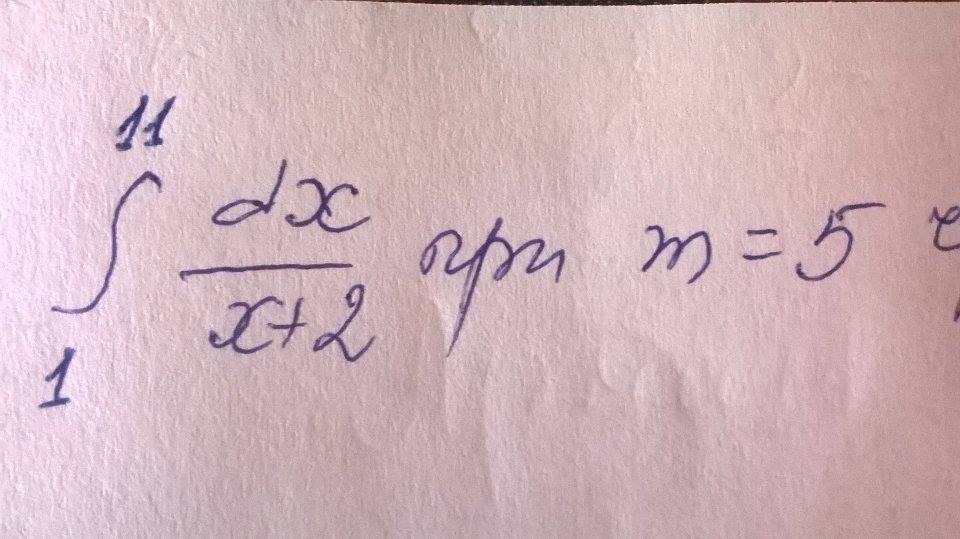 ∫₁¹¹ dx/(x+2) при m = 5